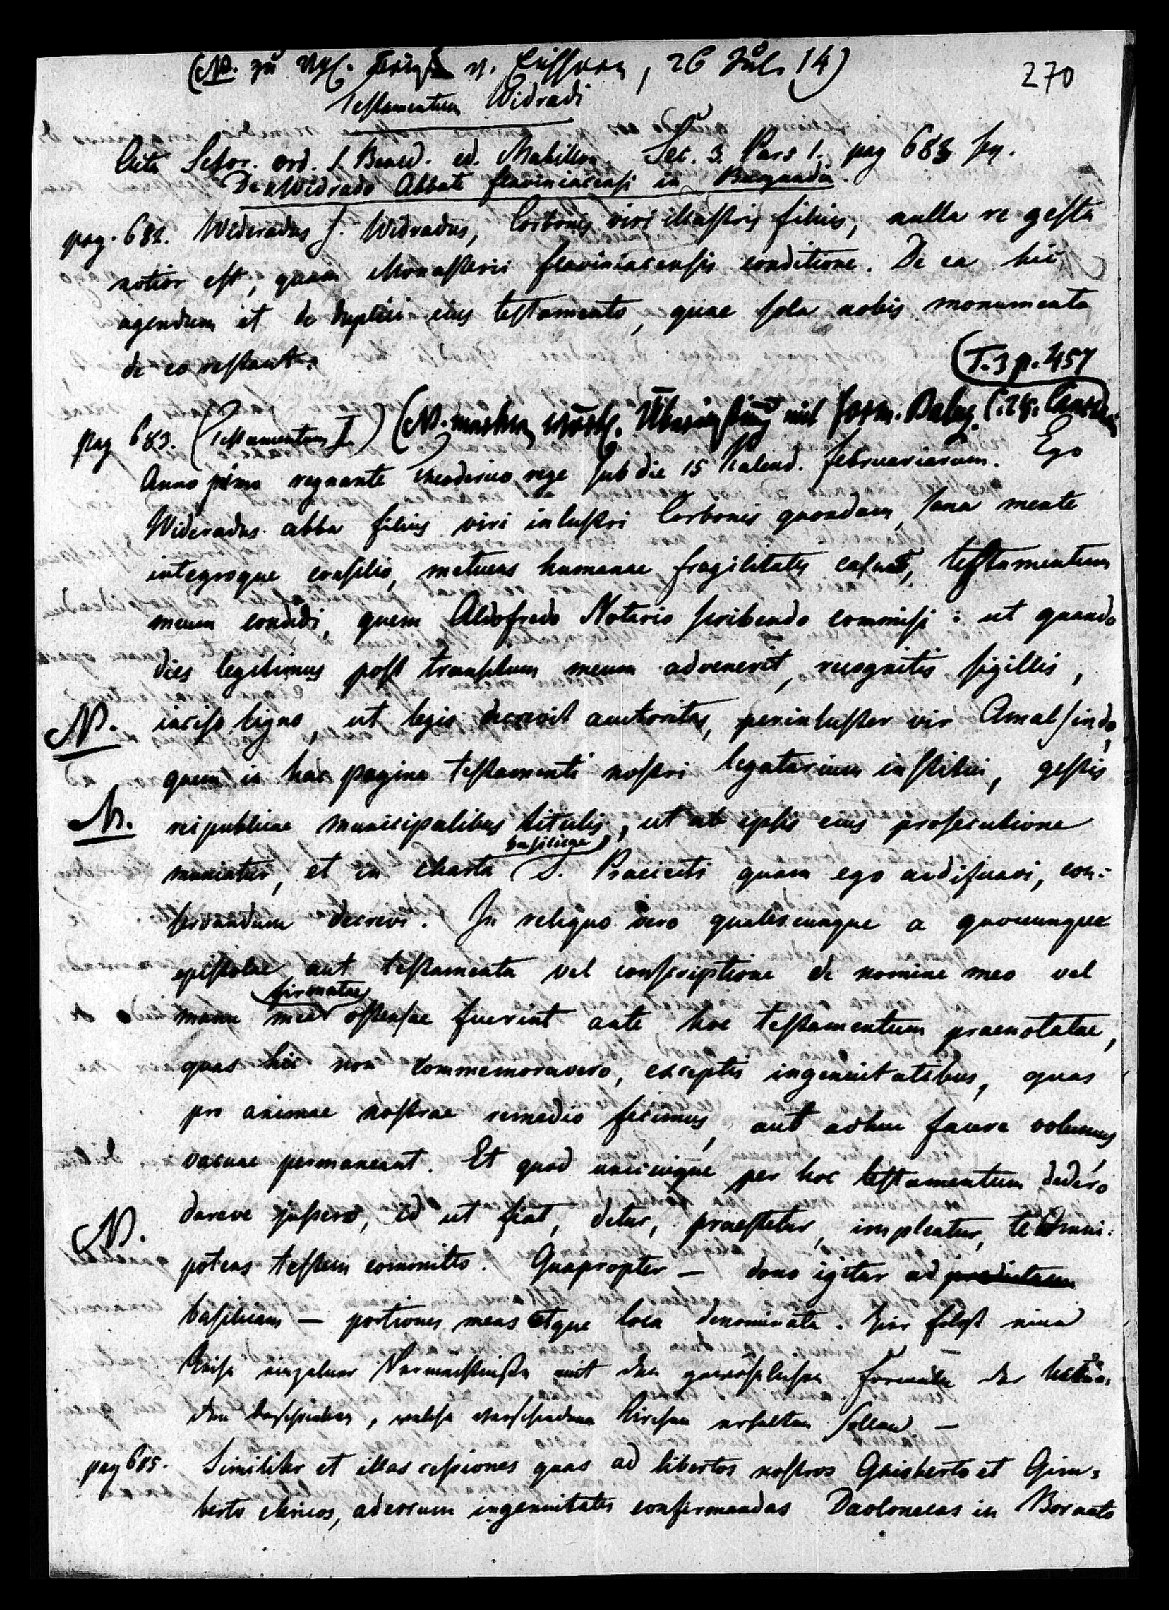 (N. zu , 26 Jul. 14)
270
Testamentum Widradi
ord. S. Bened. ed. Mabillon. Sec. 3. Pars 1. pag 683 sq.
De Widrado Abbate flaviniacensi in Burgundia.
pag. 682. Wideradus s. Widradus, Corbonis viri illustris filius, nulla re gesta
notior est, quam Monasterii flaviniacensis conditione. De ea hic
agendum et de duplici eius testamento, quae sola nobis monumenta
de eo restant.
(T. 3 p. 457
pag 683. (Testamentum I) (N. mit form. Baluz. C. 28.
Anno primo regnante theoderico rege sub die 15 Kalend. februariarum. Ego
Wideradus abba filius viri inlustri Corbonis quondam, sana mente
integroque consilio, metuens humanae fragilitatis casus, testamentum
meum condidi, quem Aldofredo Notario scribendo commisi: ut quando
dies legitimus post transitum meum advenerit, recognitis sigillis,
N. inciso ligno, ut legis decrevit auctoritas, per inluster vir Amalsindo,
quem in hac pagina testamenti nostri legatarium institui, gestis
N. reipublicae municipalibus titulis, ut ab ipsis eius prosecutione
basilicae
muniatur, et in charta S. Praeiecti quam ego aedificavi, con-
servandum decrevi. In reliquo vero qualescunque a quocunque
epistolae aut testamenta vel conscriptione de nomine meo vel
firmatae
manu mea ostensae fuerint ante hoc testamentum praenotatae,
quas hic non commemoravero, exceptis ingenuitatibus, quas
pro animae nostrae remedio fecimus, aut adhuc facere volumus
vacuae permaneant. Et quod unicuique per hoc testamentum dedero
N. dareve jussero, id ut fiat, detur, praestetur, impleatur, te Omni-
potens testem committo. Quapropter — dono igitur ad praedictam
basilicam — portiones meas atque loca denominata. Hier folgt eine
Reihe einzelner Vermächtnisse mit den Formeln der
, welche verschiedene Kirchen erhalten sollen —
pag 685. Similiter et illas cessiones quas ad libertos nostros Gisberto et Gim-
berto clericos, ad eorum ingenuitates confermandas Daolonecas in Bornato